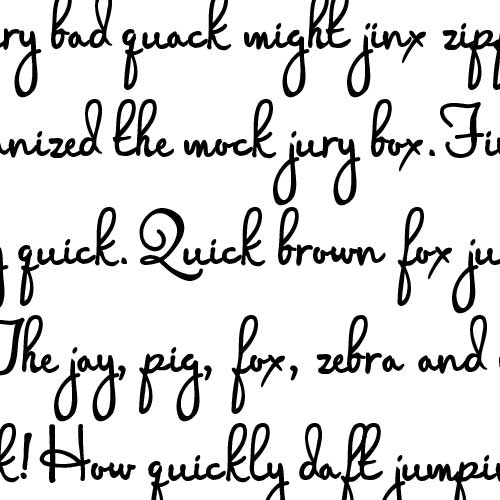 ry bad quack might jinx zipp
nized the mock jury box. Fi
quick. Quick brown fox ju
The jay, pig, fox, zebra and
k! How quickly daft jumpin